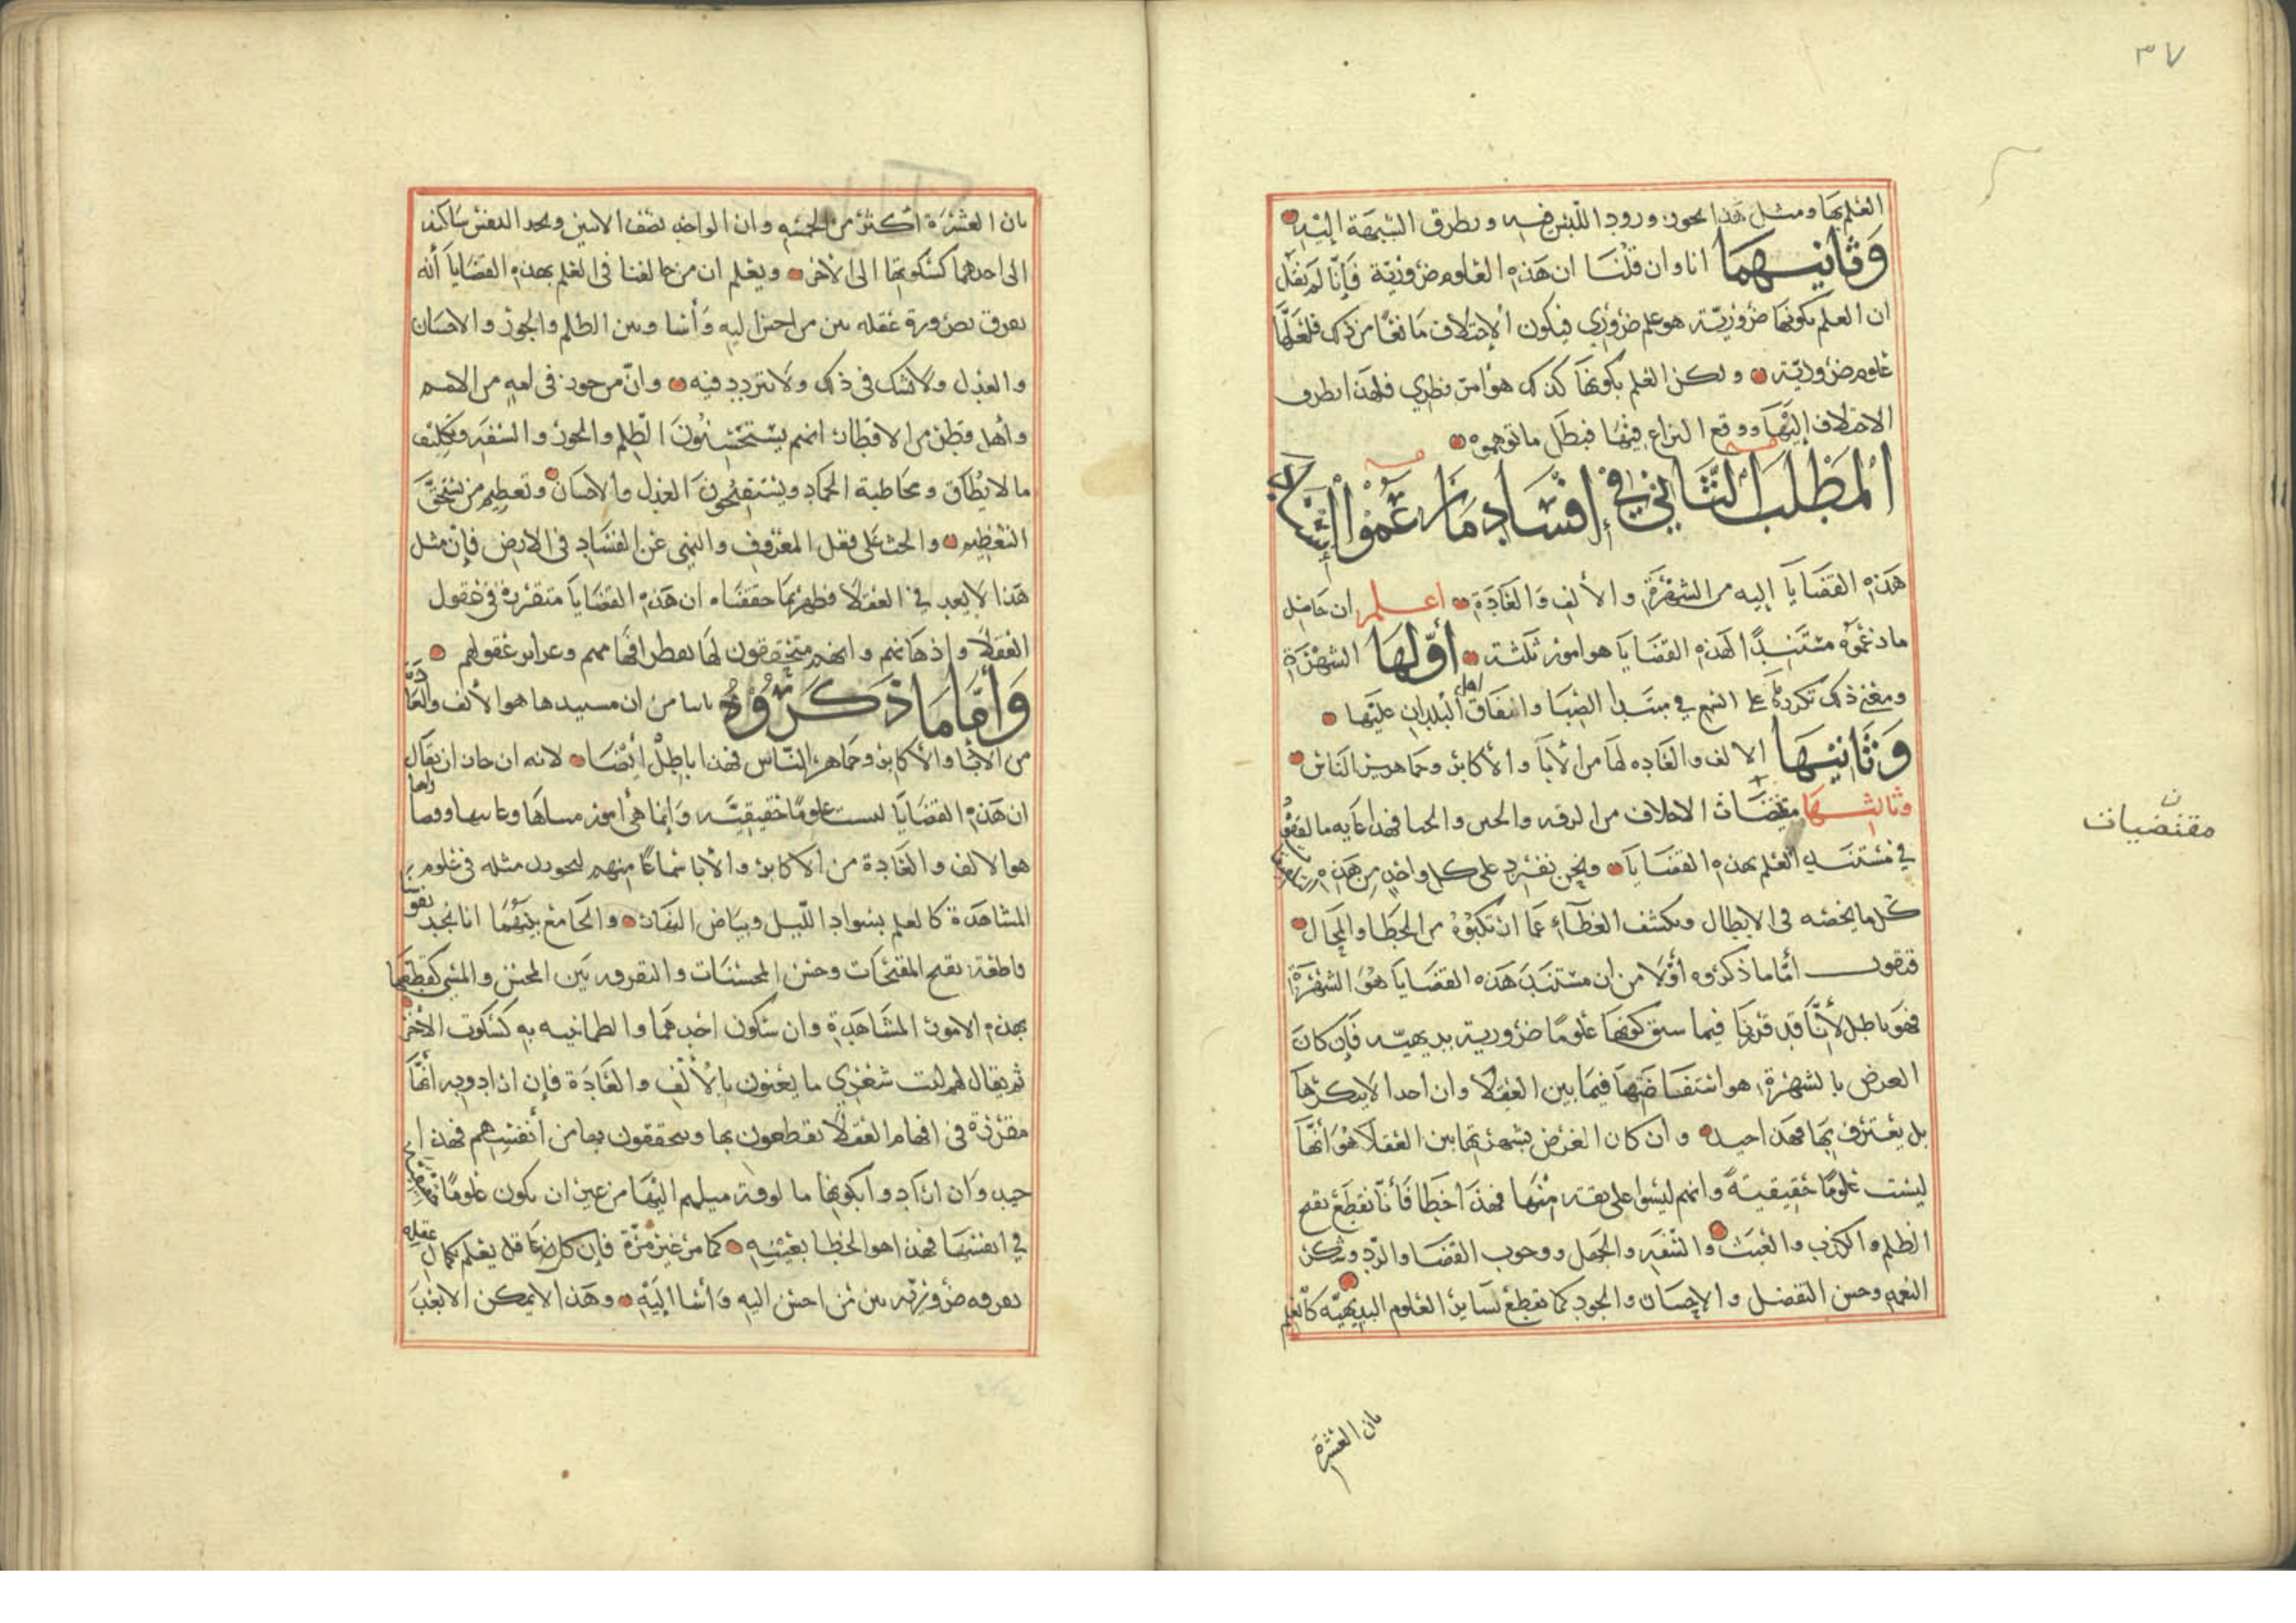 ٣٧
العلم بها ومثل هذا يجوز ورود اللبس فيه وتطرق الشبهة إليه
وَثَانيهمَا انا وان قلنا ان هذه العلوم ضرورية فإنا لم نقل
ان العلم بكونها ضرورية هو علم ضروري فيكون الإختلاف مانعا من ذلك فلعلها
علوم ضرورية ولكن العلم بكونها كذلك هو امر نظري فلهذا تطرف
الاختلاف إليها ووقع النزاع فيها فبطل ما توهموه
المَطْلَب الثَّاني في إفسَاد مَا زعَمُوا
هذه القضايا إليه من الشهرة والألف والعادة اعلم ان حاصل
ما زعموه مستندا لهذه القضايا هو امور ثلثة أوّلها الشهرة
ومعنى ذلك تكررها على السمع في مبتدا الصبا واتفاق اهل البلدان عليها
وَثَانيهَا الالف والعاده لها من الآباء والأكابر وجماهير الناس
وثالثها مقتضات الاخلاف من الرقه والحس والحيا فهذا غايه ما لفقوه
في مستند العلم بهذه القضايا ونحن نفرد على كل واحد من هذه
كل ما يخصه في الابطال ونكشف الغطاء عما ارتكبوه من الخطا والمحال
فنقول أما ما ذكروه أولا من ان مستند هذه القضايا هو الشهرة
فهو باطل لأنا قد قررنا فيما سبق كونها علوما ضرورية بديهيه فإن كان
الغرض بالشهرة هو استفاضتها فيما بين العقلا وان احدا لا ينكرها
بل يعترف بها فهذا جيد وان كان الغرض بشهرتها بين العقلا هو أنها
ليست علوما حقيقية وانهم ليسوا على ثقة منها فهذا خطا فأنا نقطع بقبح
الظلم والكذب والعبث والسفه والجهل ووجوب القضا والرد وشكر
النعم وحسن التفضل والإحسان والجود كما نقطع بسائر العلوم البديهيّه كالعلم
مقتضيات
بان العشرة
بان العشرة أكثر من الخمسه وان الواحد نصف الاثنين ونجد النفس ساكنه
الى احدهما كسكونها الى الآخر ويعلم ان من خالفنا في العلم بهذه القضايا أنه
يعرف بضرورة عقله بين من احسن اليه وأسا وبين الظلم والجور والاحسان
والعدل ولا شك في ذلك ولا تردد فيه وانّ من جوز في امه من الامم
وأهل قطر من الاقطار انهم يستحسنون الظلم والجور والسفه وتكليف
ما لا يطاق ومخاطبة الجماد ويستقبحون العدل والاحسان وتعظيم من يستحق
التعظيم والحث على فعل المعروف والنهي عن الفساد في الارض فإن مثل
هذا لا يعد في العقلا فظهر بما حققناه ان هذه القضايا متقررة في عقول
العقلا واذهانهم وانهم متحققون لها
وَأمَّا مَا ذكرُوهُ ثانيا من ان مستندها هو الألف والعادة
من الآبا والأكابر وجماهير الناس فهذا باطل أيضا لانه ان جاز ان يقال
ان هذه القضايا ليست علوما حقيقيه وإنما هي امور
هو الالف والعادة من الأكابر والآبا سماعا منهم ليجوزن مثله في علوم
المشاهدة كالعلم بسواد الليل وبياض النهار والجامع بينهما انا نجد نفوسنا
قاطعة بقبح المقبحات وحسن المحسنات والتفرقه بين المحسن والمسي كقطعها
بهذه الامور المشاهدة وان سكون احدهما والطمانينه به كسكون الآخر
ثم يقال لهم ليت شعري ما يعنون بالألف والعادة فإن ارادوا به أنها
مقررة في افهام العقلا يقطعون بها ويتحققون بها من أنفسهم فهذا
جيد وان ارادوا بكونها مالوفة ميلهم اليها من غير ان يكون علوما
في انفسها فهذا هو الخطا بعينه كما مر غير مرة فإن كل عاقل يعلم بكمال عقله
تفرقه ضرورية بين من احسن اليه وأسا إليه وهذا لا يمكن الا بعد